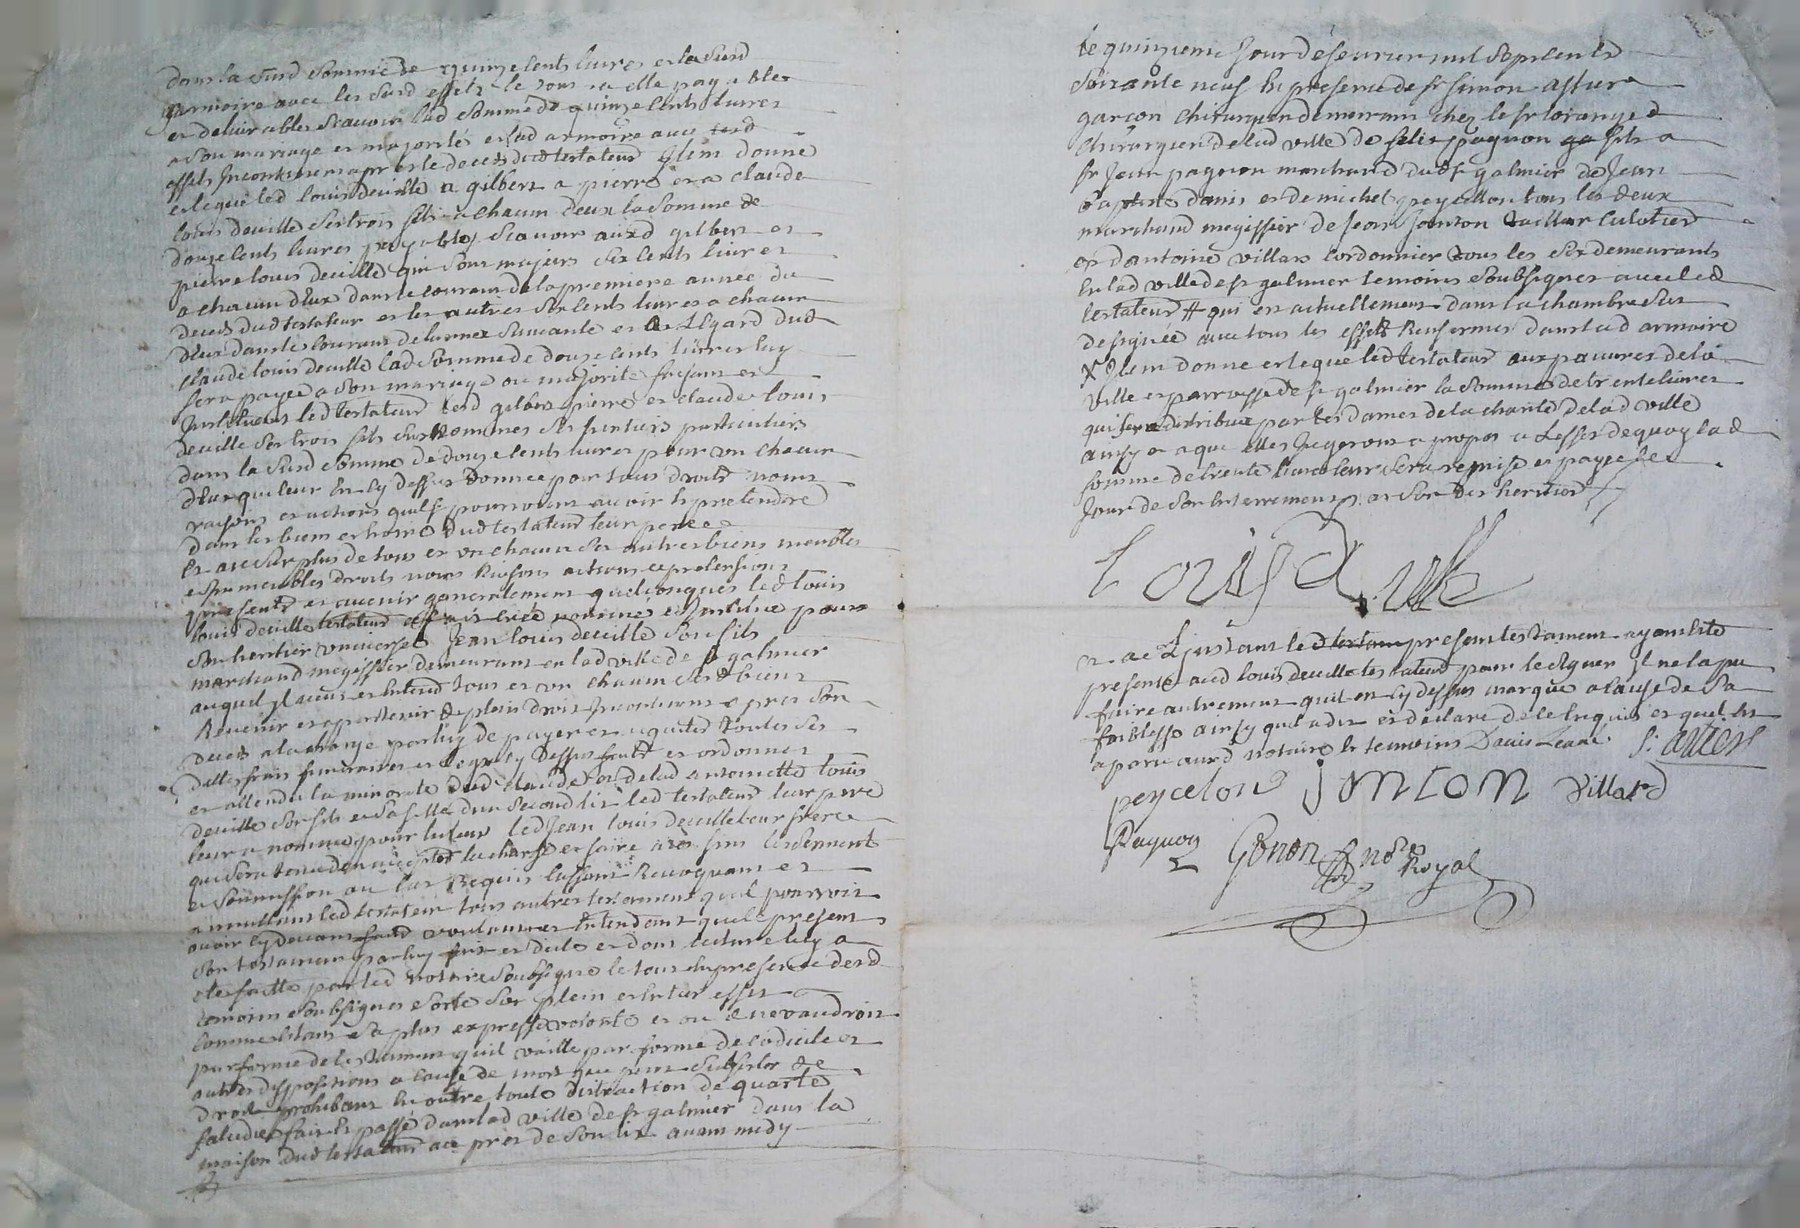 dans la susd somme de quinze cents livres et la susd
armoire avec les susd effets le tout a elle payables
et delivrables scavoir lad somme de quinze cents livres
a son mariage et majorité et lad armoire avec lesd
effets incontinent apres le deces dud testateur Item donne
et legue led louis deville a gilbert a pierre et a claude
louis deville ses trois fils a chacun deux la somme de
douze cents livres payables scavoir auxd gilbert et
pierre louis deville qui sont majeurs six cents livres
a chacun deux dans le courant de la premiere année du
deces dud testateur et les autres six cents livres a chacun
deux dans le courant de lannee suivante et a Legard dud
claude louis deville lad somme de douze cents livres luy
sera payée a son mariage ou majorité faisant et
Instituant led testateur lesd gilbert pierre et claude louis
deville ses trois fils susnommes ses heritiers particuliers
dans la susd somme de douze cents livres pour un chacun
deux qui leur en cy dessus donnee pour tous droits noms
raisons et actions quils pourroient avoir et pretendre
dans les biens et hoirie dud testateur leur pere
et au surplus de tous et un chacun ses autres biens meubles
et immeubles droits noms Raisons actions et pretensions
presents et avenir generalement quelconques led louis
louis deville testateur a créé nommé et institué pour
son heritier universel Jean louis deville son fils
marchand megissier demeurant en lad ville de st galmier
auquel il veut et entend tous et un chacun sesd biens
Revenir et appartenir de plein droit incontinent apres son
deces a la charge par luy de payer et acquitter toutes ses
dettes frais funeraires et legs cy dessus faits et ordonnes
et attendu la minorité dud claude et de lad antoinette louis
deville son fils et sa fille du second lit led testateur leur pere
leur a nommé pour tuteur led Jean louis deville leur frere
qui sera tenu den accepter la charge et faire a ces fins le serment
et soumission au cas Requis cassant Revoquant et
annullant led testateur tous autres testaments quil pourroit
avoir cy devant fait voulant et entendant que le present
son testament par luy fait et dicté et dont lecture luy a
ete faitte par led notaire soussigné le tout en presence desd
temoins soubsignes sorte son plein et entier effet
comme etant sa plus expresse volonté et ou il ne vaudroit
par forme de testament quil vaille par forme de codicile et
autres dispositions a cause de mort que peut subsister de
droit prohibant en outre toute distraction de quarte
falcidie fait et passé dans lad ville de st galmier dans la
maison dud testateur au pres de son lit avant midy
le quinzieme Jour de fevrier mil sept cents
soixante neuf En presence de sr simon assura
garcon chirurgien demeurant chez le sr lorange
chirurgien de lad ville de felix pagnon fils a
sr Jean pagnon marchand dud st galmier de Jean
baptiste danis et de michel peycelon tous les deux
marchand megissier de Jean Jonson tailleur culotier
et dantoine villard cordonnier tous les six demeurants
en lad ville de st galmier temoins soubsignes avec led
testateur # qui en actuellement dans la chambre sus
designée avec tous les effets Renfermes dans lad armoire
X Item donne et legue led testateur aux pauvres de la
ville et parroisse de st galmier la somme de trente livres
qui sera distribuée par les dames de la charité de lad ville
ainsy et a que elles Jugeront a propos a Leffet de quoy lad
somme de trente livres leur sera remise et payée le
Jour de son Enterrement par son dit heritier
Louis Deville
et a Linstant led present testament ayant eté
presenté aud louis deville testateur pour le signer Il ne la pu
faire autrement quil en cy dessus marqué a cause de sa
foiblesse ainsy quil a dit et declaré de ce Enquis et quil en
aparu auxd notaire et temoins
peycelon jonson villard
Pagnon Gonon no.re Royal